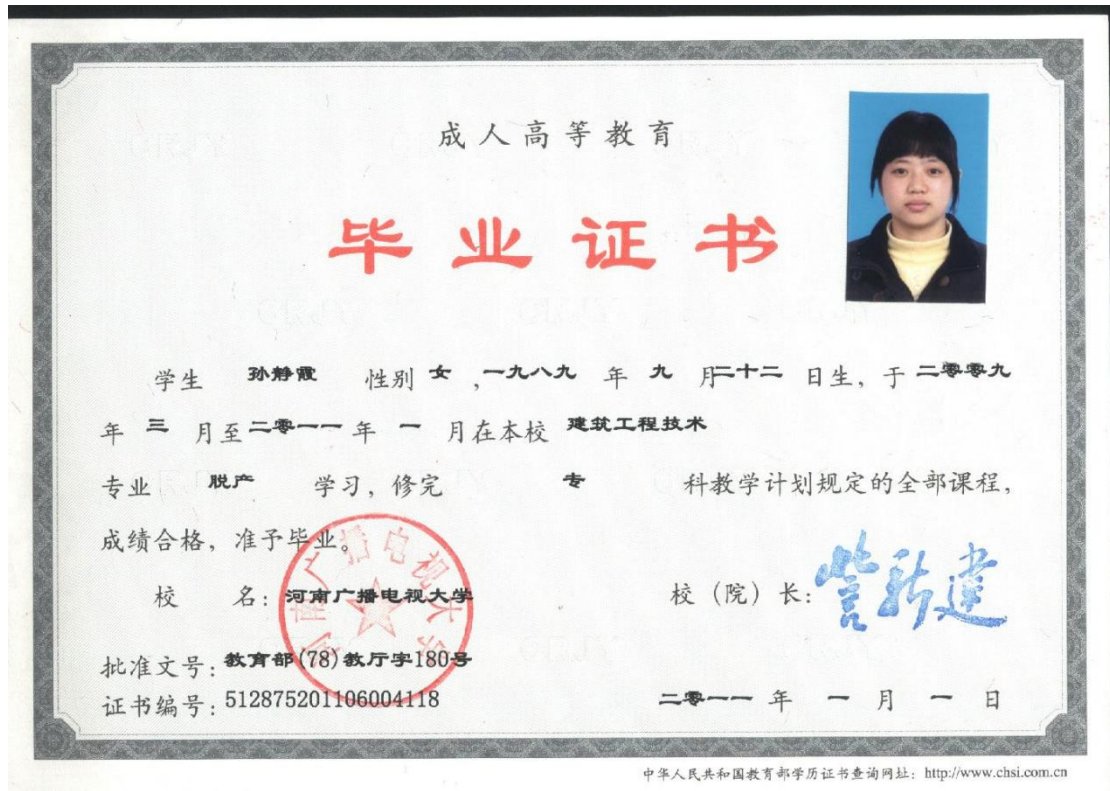 成人高等教育
毕业证书
学生 孙静霞 性别 女 ,一九八九 年 九 月二十二 日生，于 二零零九
年 三 月至二零一一年 一 月在本校 建筑工程技术
专业 脱产 学习，修完 专 科教学计划规定的全部课程，
成绩合格，准予毕业。
河南广播电视大学
校 名：河南广播电视大学 校（院）长：
批准文号：教育部(78)教厅字180号
证书编号：512875201106004118 二零一一 年 一 月 一 日
中华人民共和国教育部学历证书查询网址：http://www.chsi.com.cn